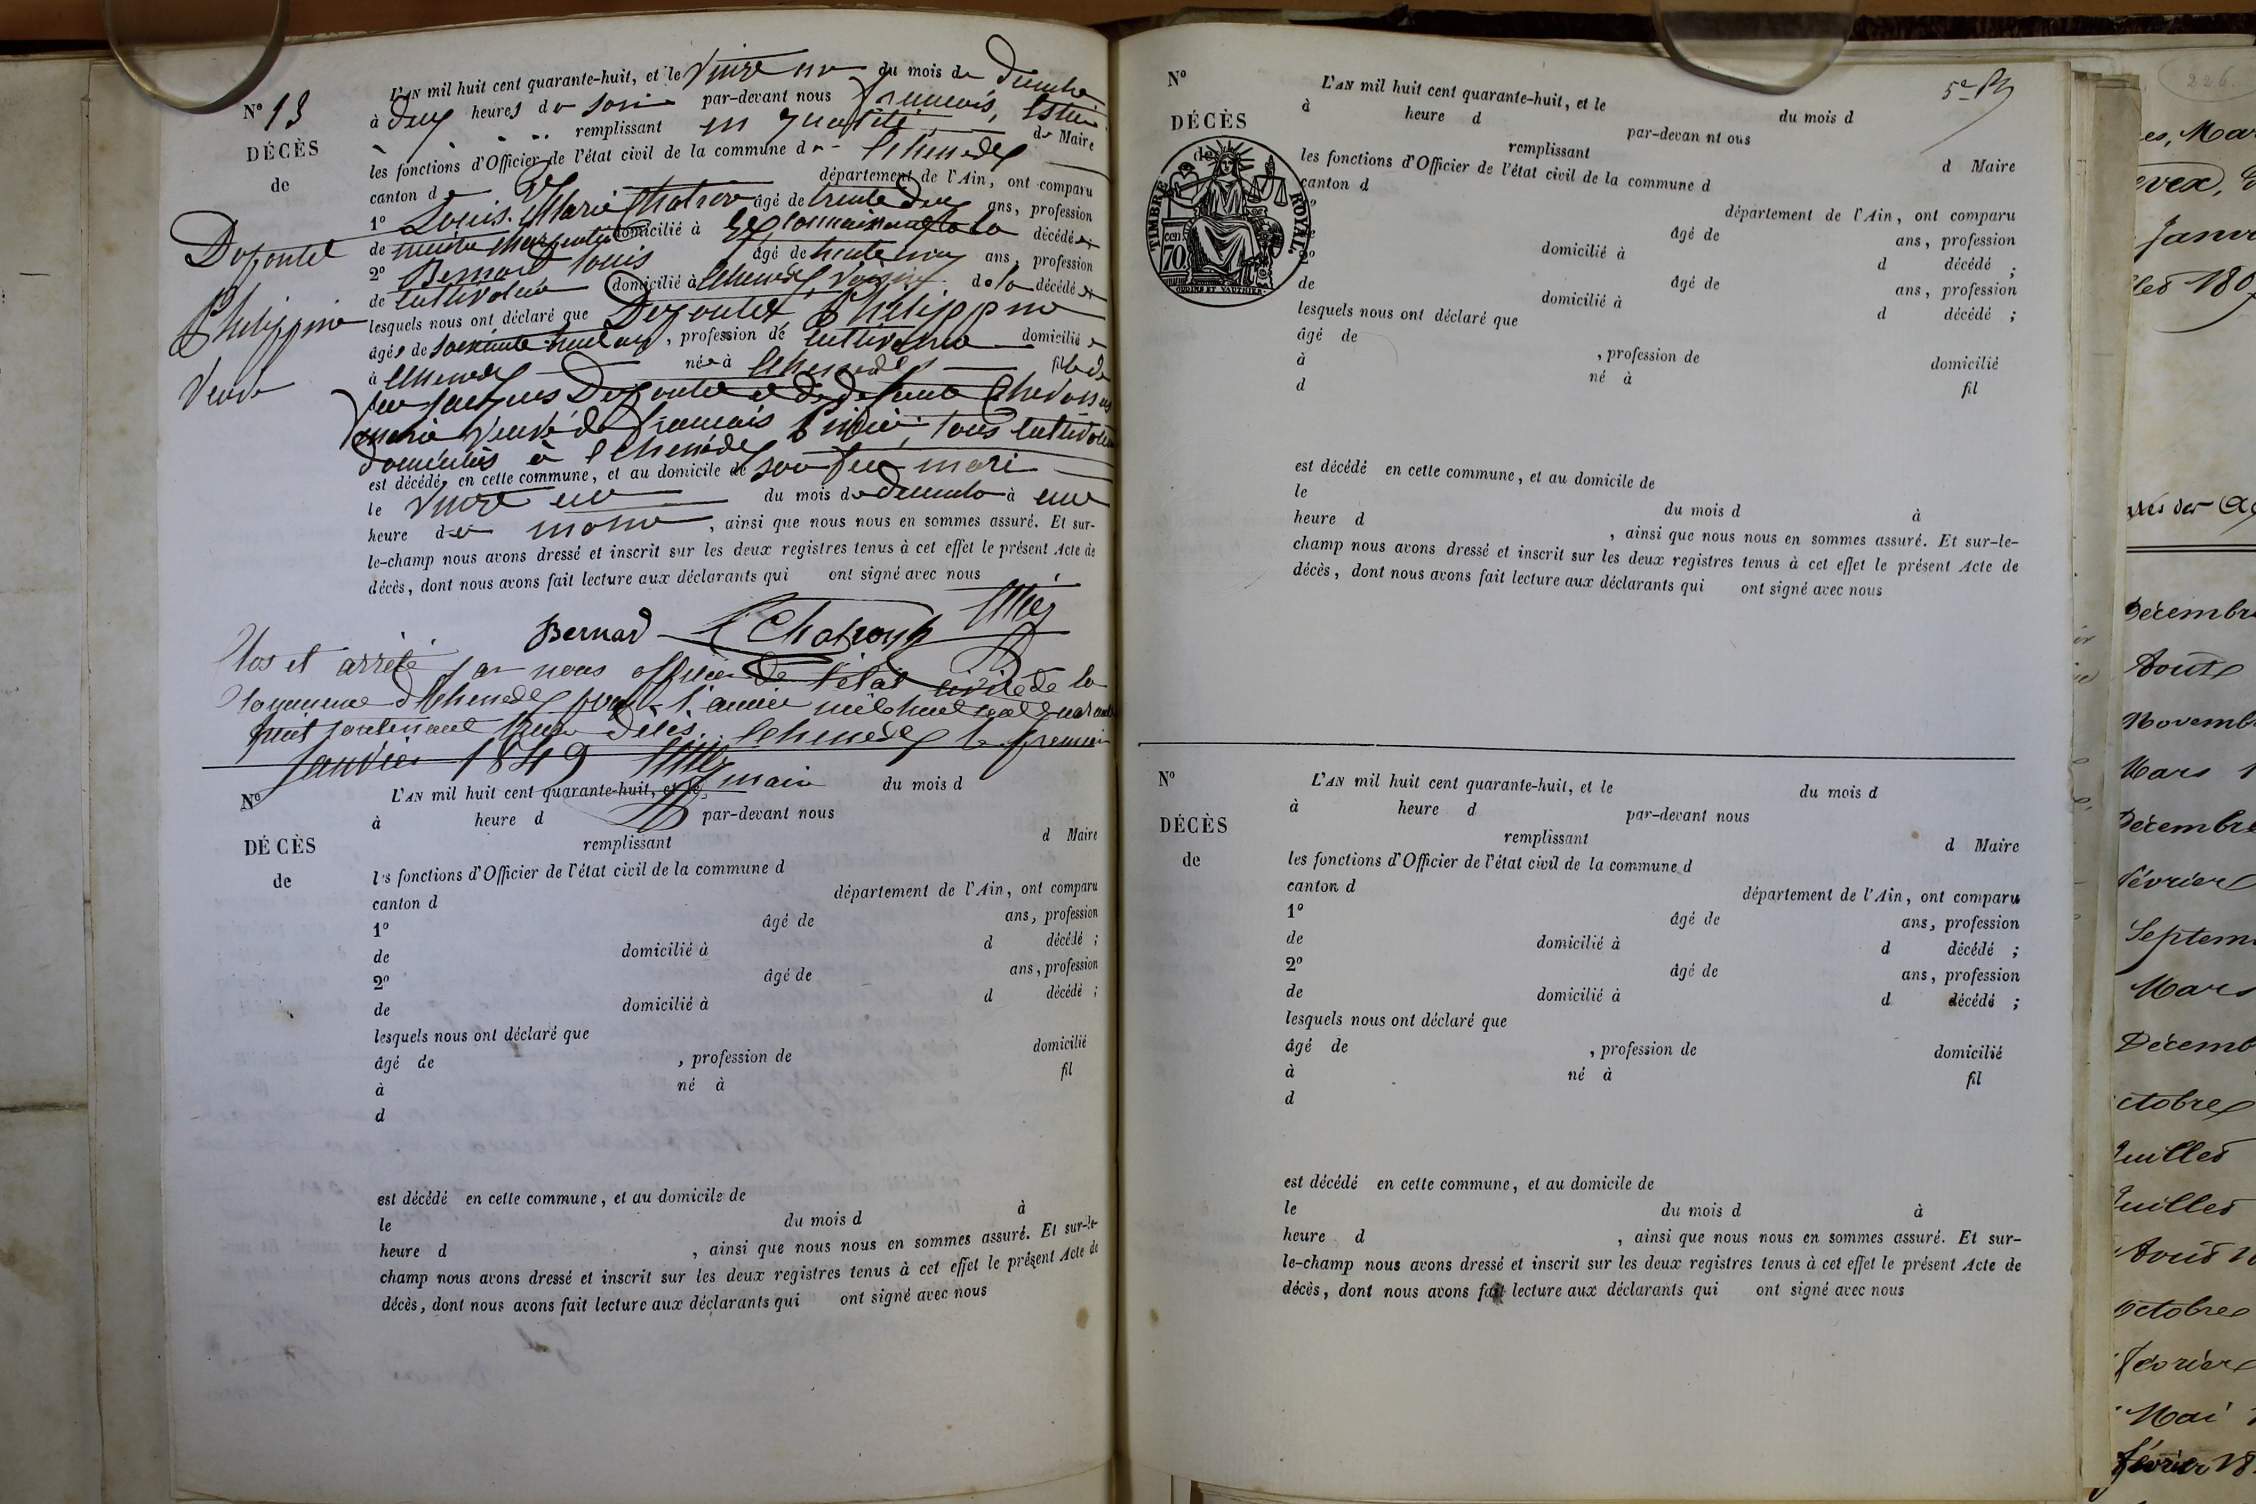 N° 13
DÉCÈS
de
Dufoutel
Philippine
Veuve
L'AN mil huit cent quarante-huit, et le vingt un du mois de Décembre
à deux heures du soir par-devant nous François,
remplissant en qualité de Maire
les fonctions d'Officier de l'état civil de la commune d Echenevex
canton de département de l'Ain, ont comparu
1° Louis Marie Chatron âgé de trente deux ans, profession
de maître charpentier domicilié à Gex connaissant de la décédée
2° Bernard Louis âgé de trente ans, profession
de cultivateur domicilié à Echenevex, voisin de la décédée
lesquels nous ont déclaré que Dufoutel Philippine
âgée de soixante huit ans, profession de cultivatrice domiciliée
à Echenevex née à Echenevex fille de
feu Jacques Dufoutel et de défunte
marie veuve de François tous cultivateurs
domiciliés à Echenevex
est décédée en cette commune, et au domicile de son feu mari
le vingt un du mois de décembre à une
heure du matin, ainsi que nous nous en sommes assuré. Et sur-
le-champ nous avons dressé et inscrit sur les deux registres tenus à cet effet le présent Acte de
décès, dont nous avons fait lecture aux déclarants qui ont signé avec nous
Bernard L Chatron
Clos et arrêté par nous officier de l'état civil de la
Commune d'Echenevex pour l'année mil huit cent quarante
huit contenant treize décès. Echenevex le premier
Janvier 1849
maire
N°
DÉCÈS
de
L'AN mil huit cent quarante-huit, et le du mois d
à heure d par-devant nous
remplissant d Maire
les fonctions d'Officier de l'état civil de la commune d
canton d département de l'Ain, ont comparu
1° âgé de ans, profession
de domicilié à d décédé ;
2° âgé de ans, profession
de domicilié à d décédé ;
lesquels nous ont déclaré que
âgé de , profession de domicilié
à né à fil
d
est décédé en cette commune, et au domicile de
le du mois d à
heure d , ainsi que nous nous en sommes assuré. Et sur-le-
champ nous avons dressé et inscrit sur les deux registres tenus à cet effet le présent Acte de
décès, dont nous avons fait lecture aux déclarants qui ont signé avec nous
5e
N°
DÉCÈS
de
TIMBRE ROYAL
70 cen
OUDINE ET VAUTHIER
L'AN mil huit cent quarante-huit, et le du mois d
à heure d par-devan nt ous
remplissant d Maire
les fonctions d'Officier de l'état civil de la commune d
canton d département de l'Ain, ont comparu
âgé de ans, profession
domicilié à d décédé ;
2° âgé de ans, profession
de domicilié à d décédé ;
lesquels nous ont déclaré que
âgé de , profession de domicilié
à né à fil
d
est décédé en cette commune, et au domicile de
le du mois d à
heure d , ainsi que nous nous en sommes assuré. Et sur-le-
champ nous avons dressé et inscrit sur les deux registres tenus à cet effet le présent Acte de
décès, dont nous avons fait lecture aux déclarants qui ont signé avec nous
N°
DÉCÈS
de
L'AN mil huit cent quarante-huit, et le du mois d
à heure d par-devant nous
remplissant d Maire
les fonctions d'Officier de l'état civil de la commune d
canton d département de l'Ain, ont comparu
1° âgé de ans, profession
de domicilié à d décédé ;
2° âgé de ans, profession
de domicilié à d décédé ;
lesquels nous ont déclaré que
âgé de , profession de domicilié
à né à fil
d
est décédé en cette commune, et au domicile de
le du mois d à
heure d , ainsi que nous nous en sommes assuré. Et sur-
le-champ nous avons dressé et inscrit sur les deux registres tenus à cet effet le présent Acte de
décès, dont nous avons fait lecture aux déclarants qui ont signé avec nous
226
es, Mar
evex,
Janvi
llet 180
Décembre
Août
Novemb
Mars 1
Décembre
février
Septem
Mars
Décemb
ctobre
Juillet
Juillet
Août
Octobre
février
Mai
février 18